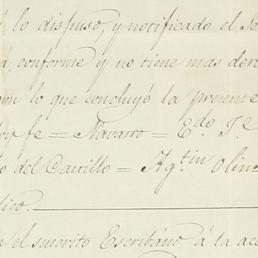 lo dispuso, y notificado el
conforme y no tiene mas
lo que concluyó la presente
fe = Navarro = E.do J.e
del Castillo = Ag.tin Olin
lico.
el suscrito Escribano á la